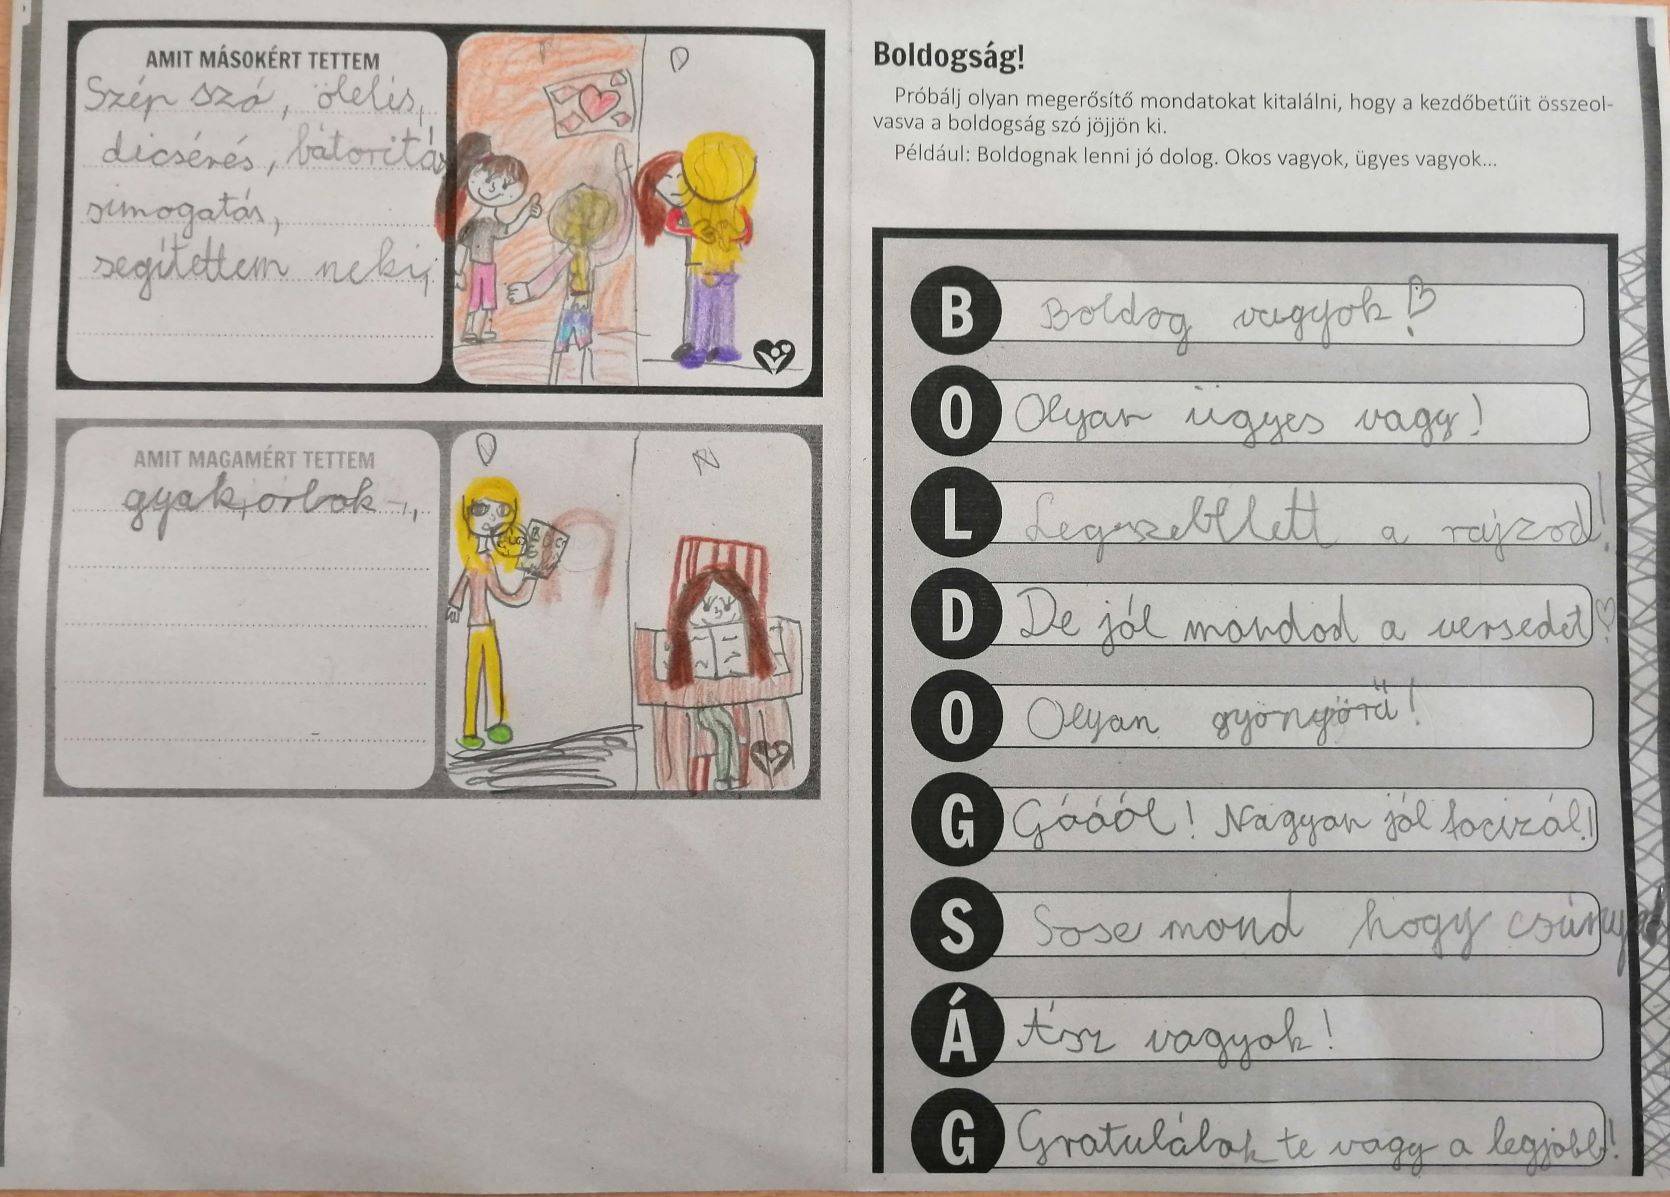 AMIT MÁSOKÉRT TETTEM
Szép szó, ölelés,
dicsérés, bátorítás
simogatás,
segítettem neki,
D
AMIT MAGAMÉRT TETTEM
gyakorlok
D
N
Boldogság!
Próbálj olyan megerősítő mondatokat kitalálni, hogy a kezdőbetűit összeol-
vasva a boldogság szó jöjjön ki.
Például: Boldognak lenni jó dolog. Okos vagyok, ügyes vagyok...
B Boldog vagyok!
O Olyan ügyes vagy!
L Legszebb lett a rajzod!
D De jól mondod a versedet!
O Olyan gyönyörű!
G Góóól! Nagyon jól focizál!
S Sose mond hogy csúnya
Á Ász vagyok!
G Gratulálok te vagy a legjobb!